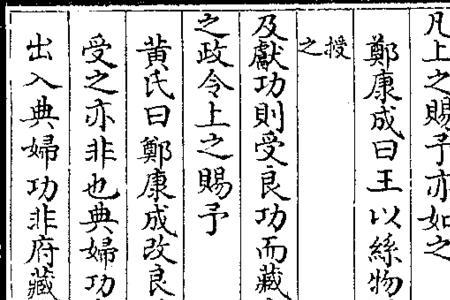 凡上之賜予亦如之
鄭康成曰王以絲物
授
之
及獻功則受良功而藏
之政令上之賜予
黃氏曰鄭康成改良
受之亦非也典婦功
出入典婦功非府藏